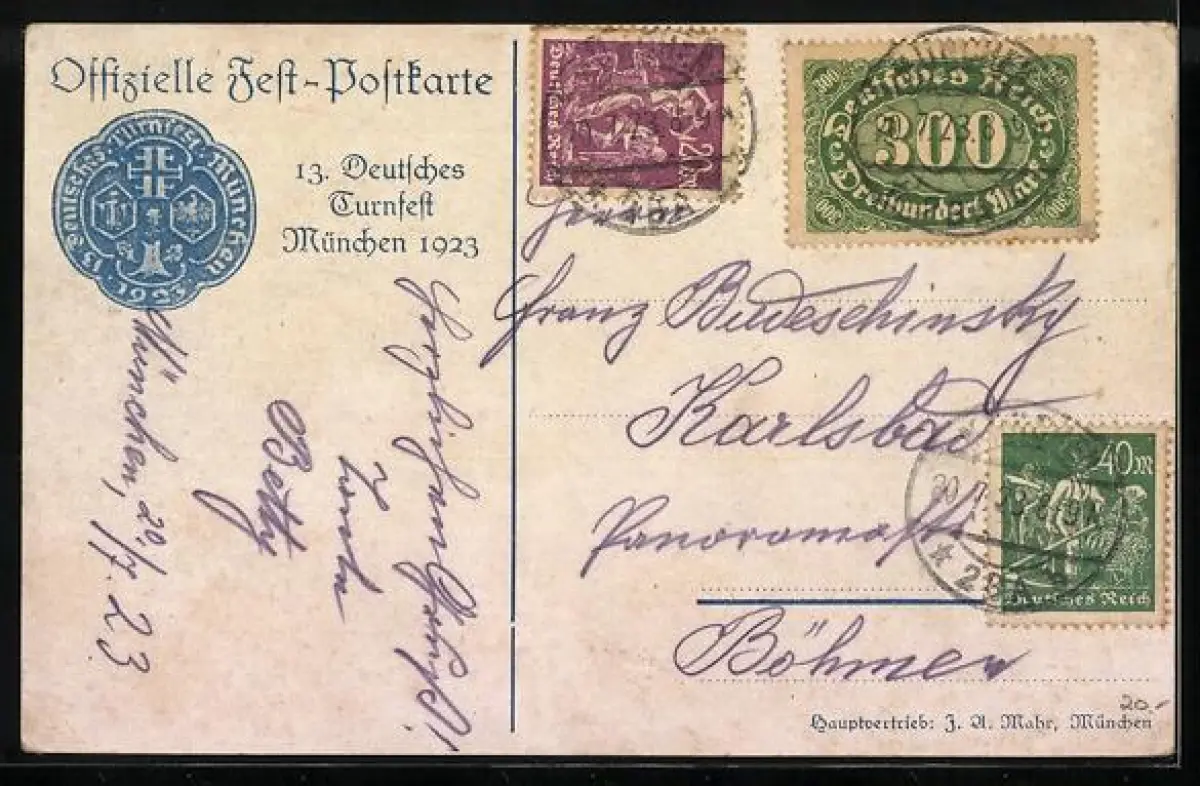 Offizielle Fest-Postkarte
13. Deutsches Turnfest München
1923
13. Deutsches
Turnfest
München 1923
München, 20./7. 23
Betty
Deutsches Reich
20M
300
Deutsches Reich
300
Dreihundert Mark
300
20.7.23.8-9
Herrn
Franz Budeschinsky
Karlsbad
Panoramastr.
Böhmen
40M
Deutsches Reich
20.-
Hauptvertrieb: J. A. Mahr, München